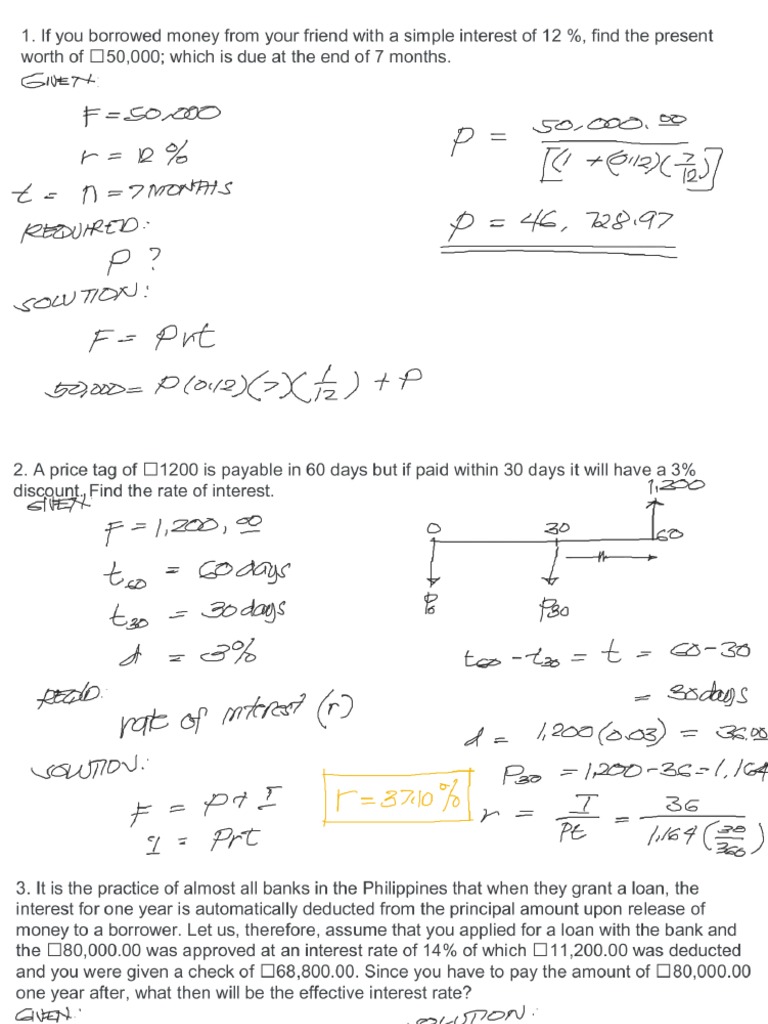 1. If you borrowed money from your friend with a simple interest of 12 %, find the present
worth of □50,000; which is due at the end of 7 months.
GIVEN:
F = 50,000
r = 12 %
t = n = 7 MONTHS
REQUIRED:
P ?
SOLUTION:
F = Prt
50,000 = P(0.12)(7)(1/12) + P
P = 50,000.00 / [(1 + (0.12)(7/12)]
P = 46,728.97
2. A price tag of □1200 is payable in 60 days but if paid within 30 days it will have a 3%
discount. Find the rate of interest.
GIVEN
F = 1,200.00
t60 = 60 days
t30 = 30 days
d = 3%
REQ'D:
rate of interest (r)
SOLUTION:
F = P + I
I = Prt
r = 37.10 %
1,200
0 30 60
n
P0 P30
t60 - t30 = t = 60 - 30
= 30 days
d = 1,200 (0.03) = 36.00
P30 = 1,200 - 36 = 1,164
r = I / Pt = 36 / 1,164 (30/360)
3. It is the practice of almost all banks in the Philippines that when they grant a loan, the
interest for one year is automatically deducted from the principal amount upon release of
money to a borrower. Let us, therefore, assume that you applied for a loan with the bank and
the □80,000.00 was approved at an interest rate of 14% of which □11,200.00 was deducted
and you were given a check of □68,800.00. Since you have to pay the amount of □80,000.00
one year after, what then will be the effective interest rate?
GIVEN: SOLUTION: